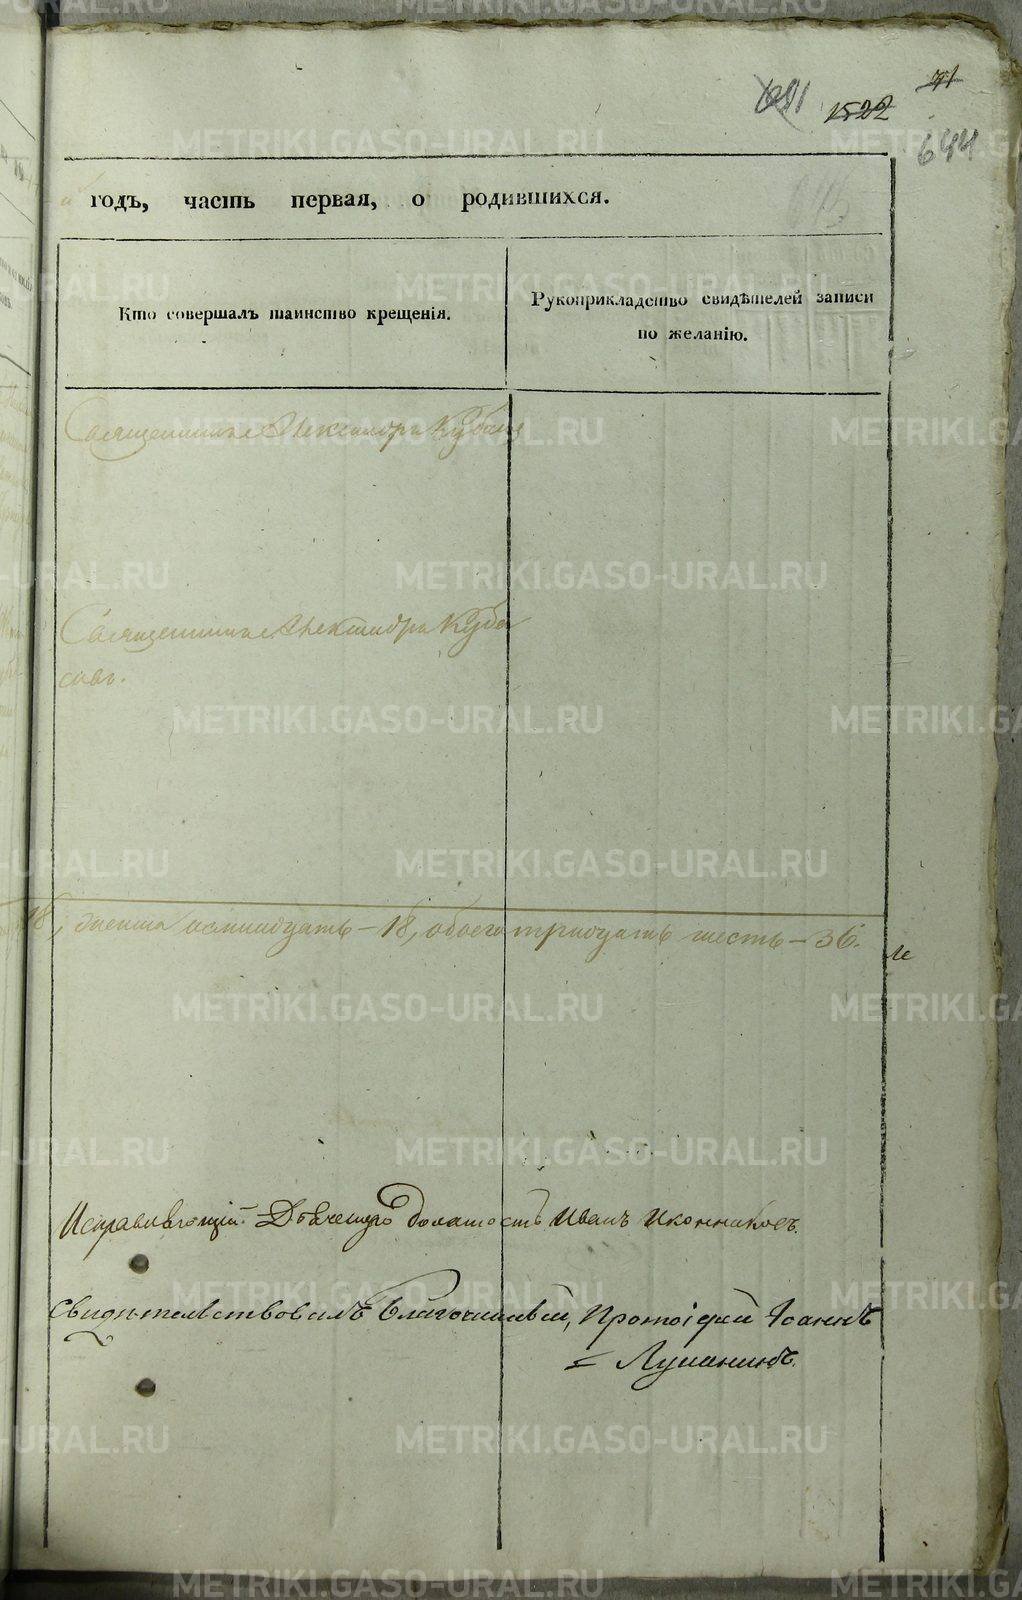 71
691 1522
644
годъ, часть первая, о родившихся.
Кто совершалъ таинство крещенія.
Рукоприкладство свидѣтелей записи
по желанію.
Священникъ Александръ Кубасов
Священникъ Александръ Куба
совъ.
18, женска осмнадцать – 18, обоего тридцать шесть – 36.
Исправляющій Дьячецкую должность Иванъ Иконниковъ.
Свидѣтельствовалъ Благочинный, Протоіерей Іоаннъ
= Луканинъ.
METRIKI.GASO-URAL.RU